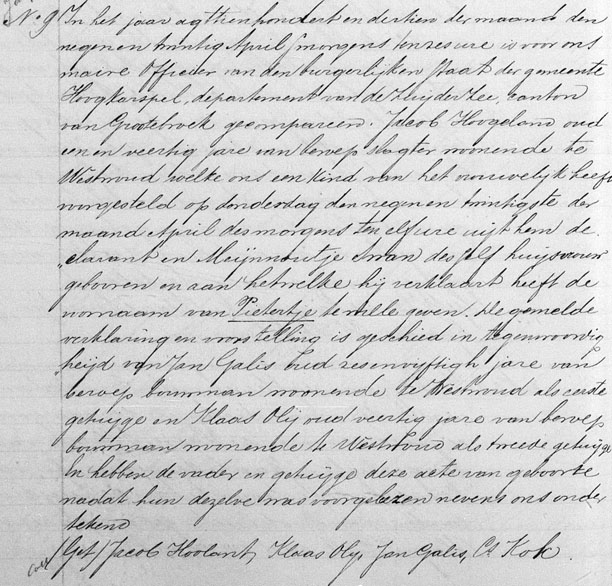 No. 9 In het jaar agttienhondert en dertien der maand den
negen en twintig April smorgens ten zes ure is voor ons
maire Officier van den burgerlijken staat der gemeente
Hoogkarspel, departement van de Zuijder Zee, canton
van Grootebroek gecompareerd. Jacob Hoogeland oud
een en veertig jare van beroep slagter woonende te
Westwoud welke ons een kind van het vrouwelijk heeft
voorgesteld op donderdag den negen en twintigste der
maand April des morgens ten elf ure uijt hem de,
"clarant en Meijnoutje Swan des self huijsvrou
gebooren en aan hetwelke hij verklaart heeft de
voornaam van Pietertje te wille geven. De gemelde
verklaring en voorstelling is geschied in tegenwoordig
heijd van Jan Galis oud zes en vyftigh jare van
beroep bouwman woonende te Westwoud als eerste
getuijge en Klaas Olij oud veertig jare van beroep
bouwman woonende te Westwoud als tweede getuijge
En hebben de vader en getuijge deze acte van geboorte
nadat hun dezelve was voorgelezen nevens ons onder
tekend
(Get) Jacob Hoolant, Klaas Olij Jan Galis, Cs Kok.